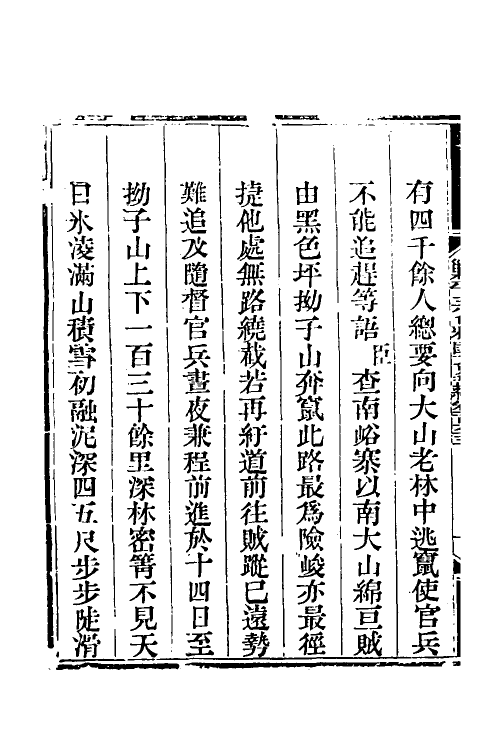 有四千餘人總要向大山老林中逃竄使官兵
不能追趕等語臣查南峪寨以南大山綿亘賊
由黑色坪拗子山奔竄此路最為險峻亦最徑
捷他處無路繞截若再紆道前往賊蹤已遠勢
難追及隨督官兵晝夜兼程前進於十四日至
拗子山上下一百三十餘里深林密箐不見天
日氷凌滿山積雪初融泥深四五尺步步陡滑